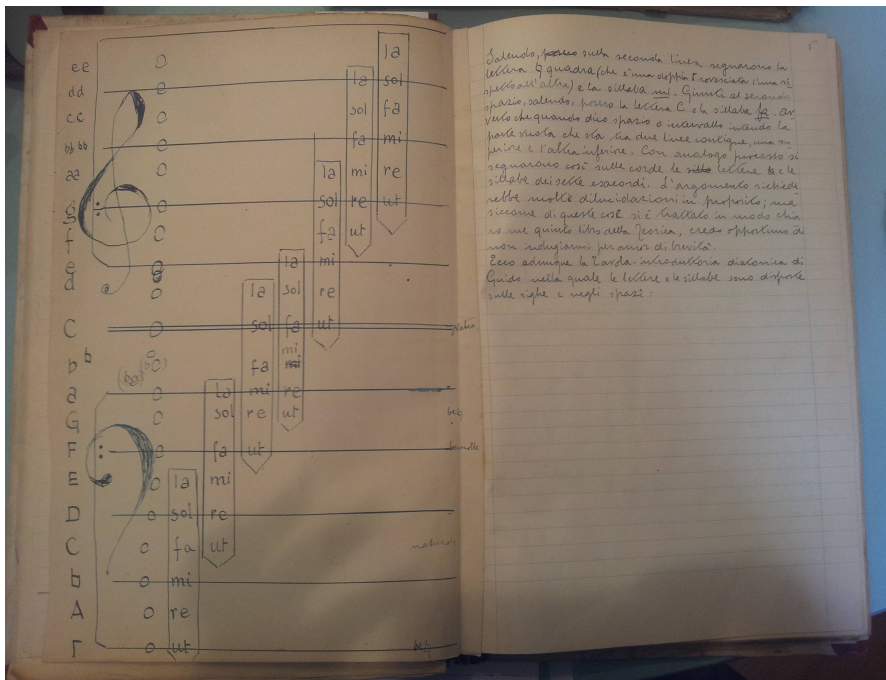 ee la
dd la sol
cc sol fa
bb bb fa mi
aa la mi re
g sol re ut
f fa ut
e la mi
d la sol re
C sol fa ut
b b fa mi mi
a la mi re
G sol re ut be♮
F fa ut bemolle
E la mi
D sol re
C fa ut natura
♮ mi
A re
Γ ut be♮
5
Salendo, sulla seconda linea segnarono la
lettera ♮ quadra (che è una doppia Γ rovesciata l'una ri
spetto all'altra) e la sillaba mi. Giunti al secondo
spazio, salendo, posero la lettera C e la sillaba fa. Av
verto che quando dico spazio o intervallo intendo la
parte vuota che sta tra due linee contigue, una su
periore e l'altra inferiore. Con analogo processo si
segnarono così sulle corde le lettere e le
sillabe dei sette esacordi. L'argomento richiede
rebbe molte dilucidazioni in proposito; ma
siccome di queste cose si è trattato in modo chia
ro nel quinto libro della Teorica, credo opportuno di
non indugiarmi per amor di brevità.
Ecco adunque la Tavola introduttoria diatonica di
Guido nella quale le lettere e le sillabe sono disposte
sulle righe e negli spazi: